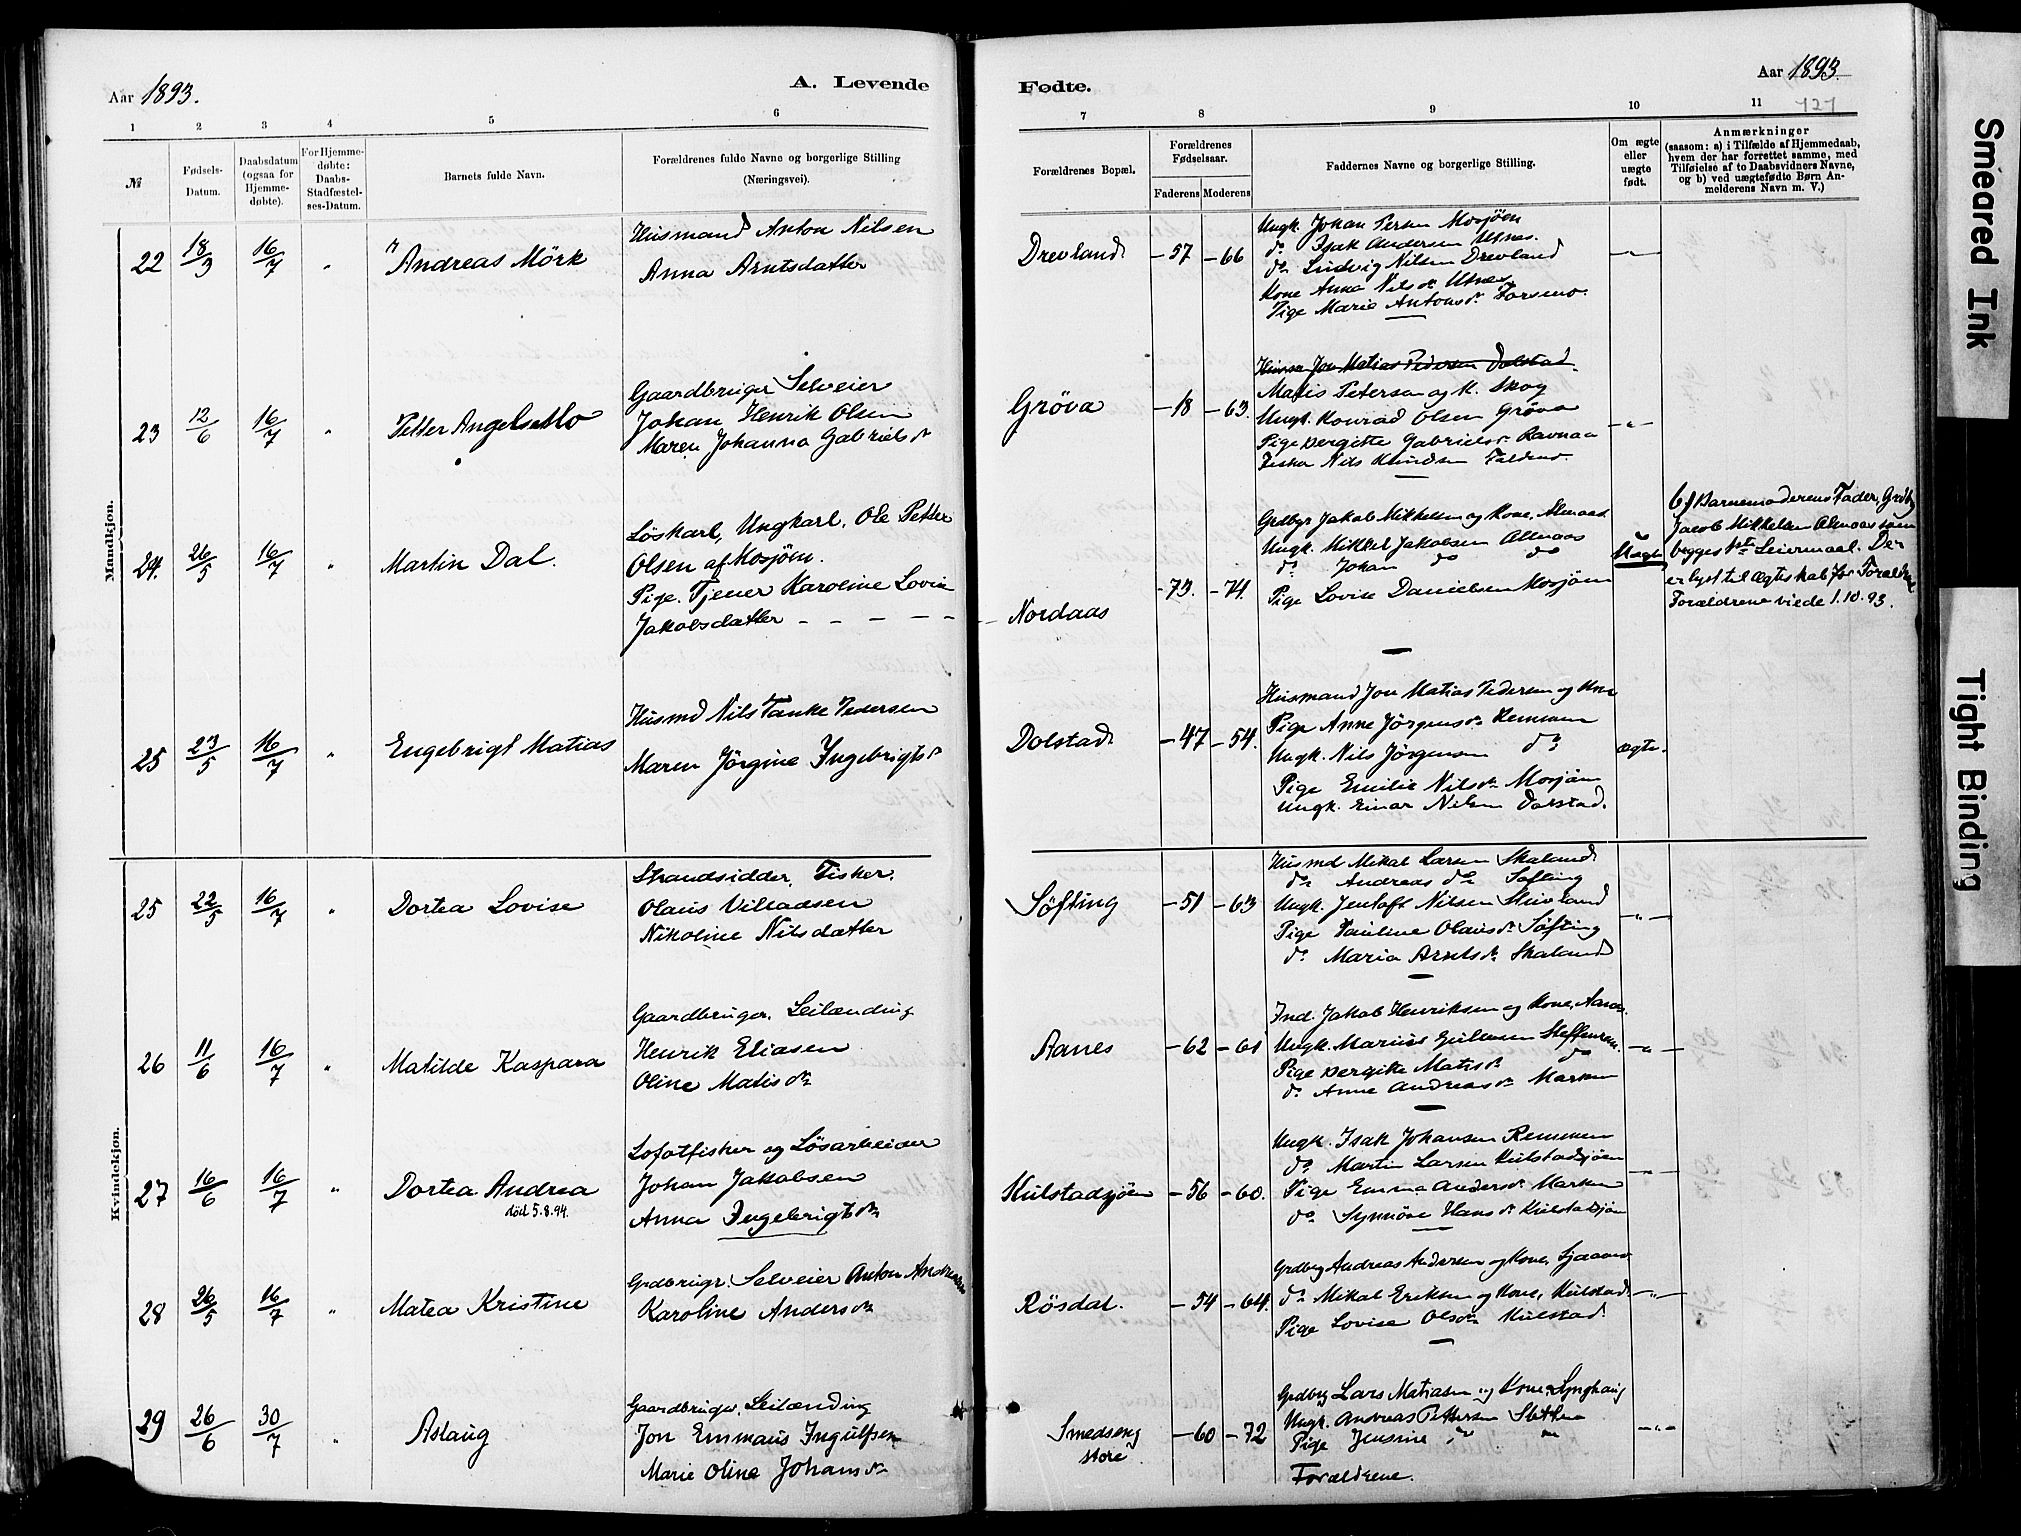 Aar 1893.
A. Levende
1 2 3 4 5 6
№
Fødsels-
Datum.
Daabsdatum
(ogsaa for
Hjemme-
døbte).
For Hjemme-
døbte:
Daabs-
Stadfæstel-
ses-Datum.
Barnets fulde Navn.
Forældrenes fulde Navne og borgerlige Stilling
(Næringsvei).
Mandkjøn.
22 18/3 16/7 " Andreas Mörk
Husmand Anton Nilsen
Anna Arntsdatter
23 12/6 16/7 " Petter Angelsetlo
Gaardbruger Selveier
Johan Henrik Olsen
Maren Johanna Gabrielsdr
24. 26/5 16/7 " Martin Dal.
Löskarl, Ungkarl, Ole Petter
Olsen af Mosjöen.
Pige. Tjener Karoline Lovise
Jakobsdatter
25 23/5 16/7 " Engebrigt Matias
Husmd Nils Tanke Pedersen
Maren Jörgine Ingebrigtsdr
Kvindekjøn.
25 22/5 16/7 " Dortea Lovise
Strandsidder, Fisker.
Olaus Villadsen
Nikoline Nilsdatter
26 11/6 16/7 " Matilde Kaspara
Gaardbruger. Leilænding
Henrik Eliasen
Oline Matisdr
27 16/6 16/7 " Dortea Andrea
död 5.8.94.
Lofotfisker og Lösarbeider
Johan Jakobsen
Anna Ingebrigtsdr
28 26/5 16/7 " Matea Kristine
Grdbrugr. Selveier Anton Andreasen
Karoline Andersdr
29 26/6 30/7 " Aslaug
Gaardbruger. Leilænding
Jon Emmaus Ingulfsen
Marie Oline Johansdr
Fødte.
Aar 1893.
121
7 8 9 10 11
Forældrenes Bopæl.
Forældrenes
Fødselsaar.
Faderens Moderens
Faddernes Navne og borgerlige Stilling.
Om ægte
eller
uægte
født.
Anmærkninger
(saasom: a) i Tilfælde af Hjemmedaab,
hvem der har forrettet samme, med
Tilføielse af to Daabsvidners Navne,
og b) ved uægtefødte Børn An-
melderens Navn m. V.)
Drevland -57 -66
Ungk. Johan Persen Mosjöen
do Isak Andersen Utnes.
do Ludvig Nilsen Drevland
Kone Anna Nilsdr Utnes
Pige Marie Antonsdr Forsmo.
Gröva -18 -63.
Jon Matias Pedersen Dolstad.
Matis Petersen og K. Skog
Ungk. Konrad Olsen Gröva
Pige Bergitte Gabrielsdr Ravnaa
Nils Knudsen
Nordaas -73. -74.
Grdbgr Jakob Mikkelsen og Kone,
Ungk. Mikkel Jakobsen
do Johan do do
Pige Lovise Danielsen Mosjöen
Uægte
b) Barnemoderens Fader, Grdbr
Jacob Mikkelsen
begges 1ste Leiermaal. Der
er lyst til Ægteskab for Forældrene
Forældrene viede 1.10.93.
Dolstad -47 -54.
Husmand Jon Matias Pedersen og Kone
Pige Anne Jörgensdr Remmen
Ungk. Nils Jörgensen do
Pige Emilie Nilsdr Mosjöen
Ungk. Einar Nilsen Dolstad.
ægte.
Söfting -51 -63
Husmd Mikal Larsen Skaland
do Andreas do Söfting
Ungk. Jentoft Nilsen
Pige Pauline Olausdr Söfting
do Maria Arntsdr Skaland
Aanes -62 -61
Ind. Jakob Henriksen og Kone, Aanes.
Ungk. Marius
Pige Bergitte Matisdr do
do Anne Andreasdr Marken
Kulstadsjöen -56 -60.
Ungk. Isak Johansen Remmen
do Martin Larsen Kulstadsjöen
Pige Emma Andersdr Marken
do Synnöve Hansdr Kulstadsjöen
Rösdal. -54 -64.
Grdbrg Andreas Andersen og Kone,
do Mikal Eriksen og Kone, Kulstad
Pige Lovise Olsdr Kulstad.
Smedseng
store -60 -72
Grdbrg Lars Matiasen og Kone, Lynghaug
Ungk. Andreas Pettersen
Pige Jensine
Forældrene.
Smeared Ink
Tight Binding